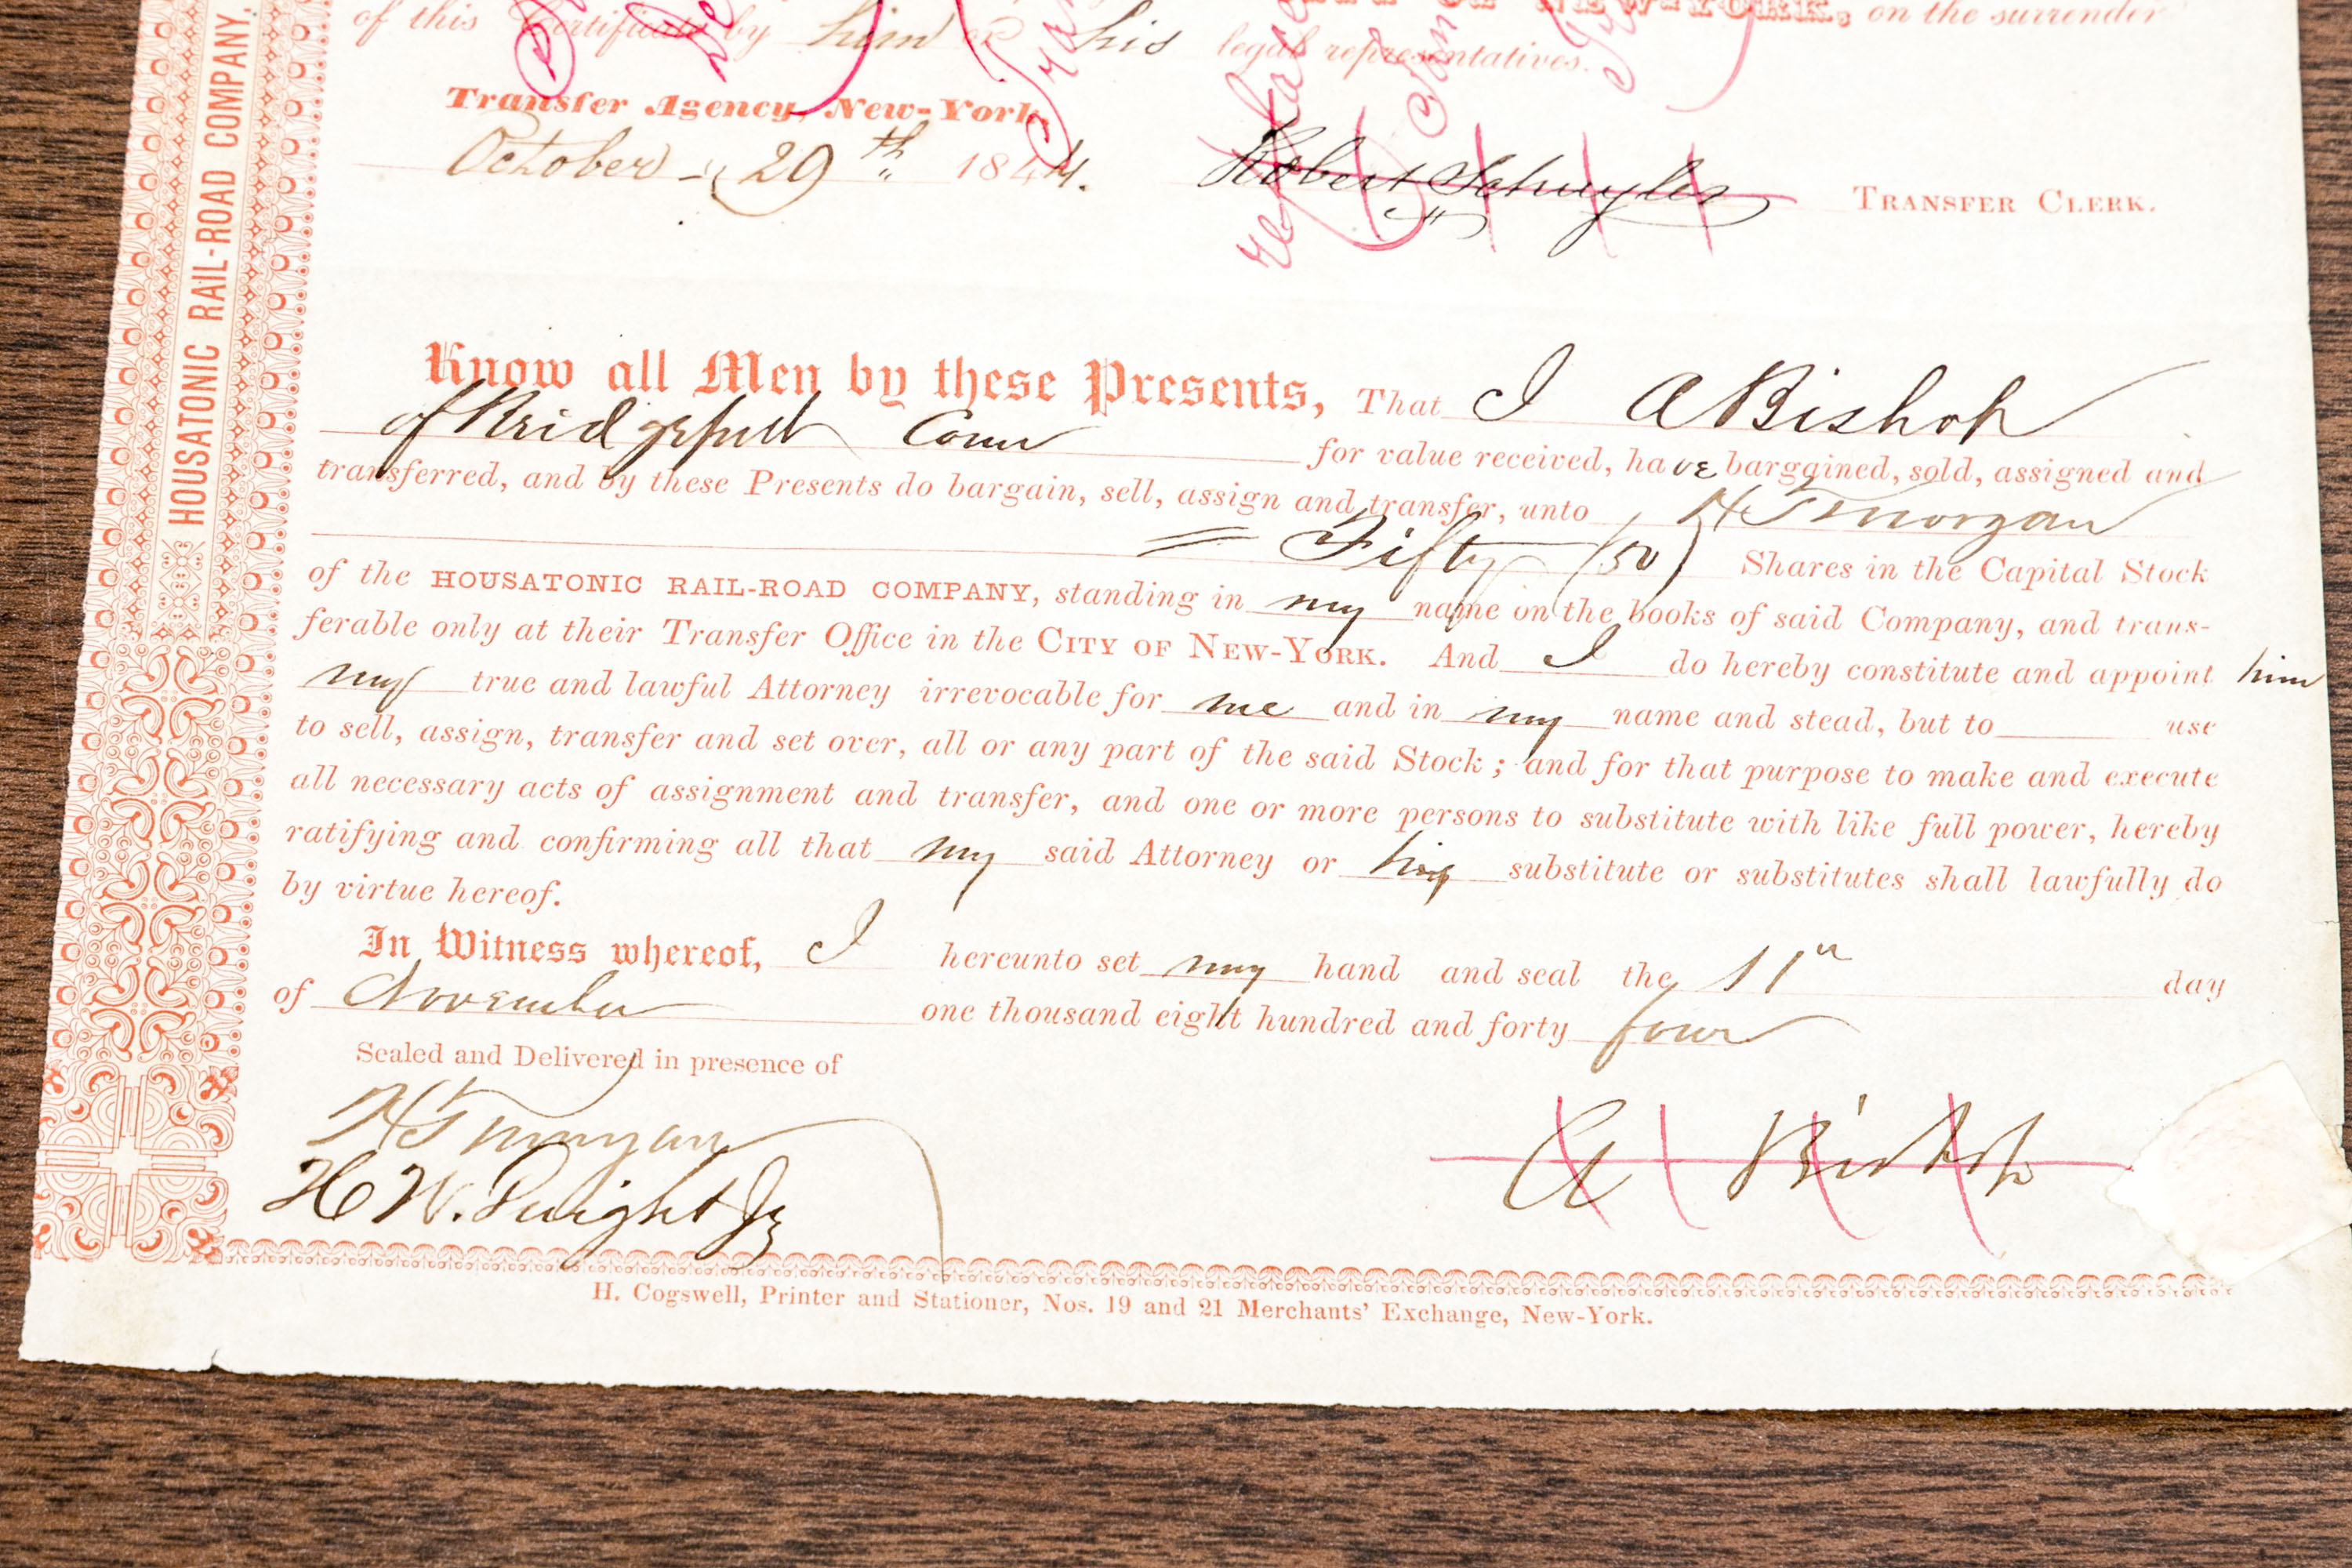 HOUSATONIC RAIL-ROAD COMPANY,
NEW-YORK, on the surrender
of this Certificate by him or his legal representatives.
Transfer Agency, New-York,
October 29th 1844. Robert Schuyler TRANSFER CLERK.
Know all Men by these Presents, That I A Bishop
of Bridgeport Conn for value received, have bargained, sold, assigned and
transferred, and by these Presents do bargain, sell, assign and transfer, unto H T Morgan
= Fifty (50) Shares in the Capital Stock
of the HOUSATONIC RAIL-ROAD COMPANY, standing in my name on the books of said Company, and trans-
ferable only at their Transfer Office in the CITY OF NEW-YORK. And I do hereby constitute and appoint him
my true and lawful Attorney irrevocable for me and in my name and stead, but to use
to sell, assign, transfer and set over, all or any part of the said Stock; and for that purpose to make and execute
all necessary acts of assignment and transfer, and one or more persons to substitute with like full power, hereby
ratifying and confirming all that my said Attorney or his substitute or substitutes shall lawfully do
by virtue hereof.
In Witness whereof, I hereunto set my hand and seal the 11th day
of November one thousand eight hundred and forty four
Sealed and Delivered in presence of
H T Morgan
H W. Dwight Jr
A Bishop
H. Cogswell, Printer and Stationer, Nos. 19 and 21 Merchants' Exchange, New-York.